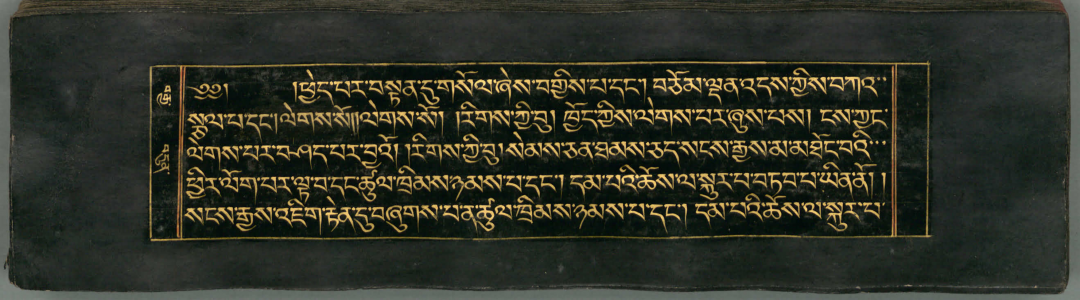 ༄༅། །ཕྱེད་པར་བསྟན་དུ་གསོལ་ཞེས་བགྱིས་པ་དང་། བཅོམ་ལྡན་འདས་ཀྱིས་བཀའ་
སྩལ་པ་དང་། ལེགས་སོ།།ལེགས་སོ། །རིགས་ཀྱི་བུ། ཁྱོད་ཀྱིས་ལེགས་པར་ཞུས་པས། ངས་ཀྱང་
ལེགས་པར་བཤད་པར་བྱའོ། །རིགས་ཀྱི་བུ། སེམས་ཅན་ཐམས་ཅད་སངས་རྒྱས་མ་མཐོང་བའི་
ཕྱིར་ལོག་པར་ལྟ་བ་དང་ཚུལ་ཁྲིམས་ཉམས་པ་དང་། དམ་པའི་ཆོས་ལ་སྐུར་པ་བཏབ་པ་ཡིན་ནོ། །
སངས་རྒྱས་འཇིག་རྟེན་དུ་བཞུགས་པ་ན་ཚུལ་ཁྲིམས་ཉམས་པ་དང་། དམ་པའི་ཆོས་ལ་སྐུར་པ་